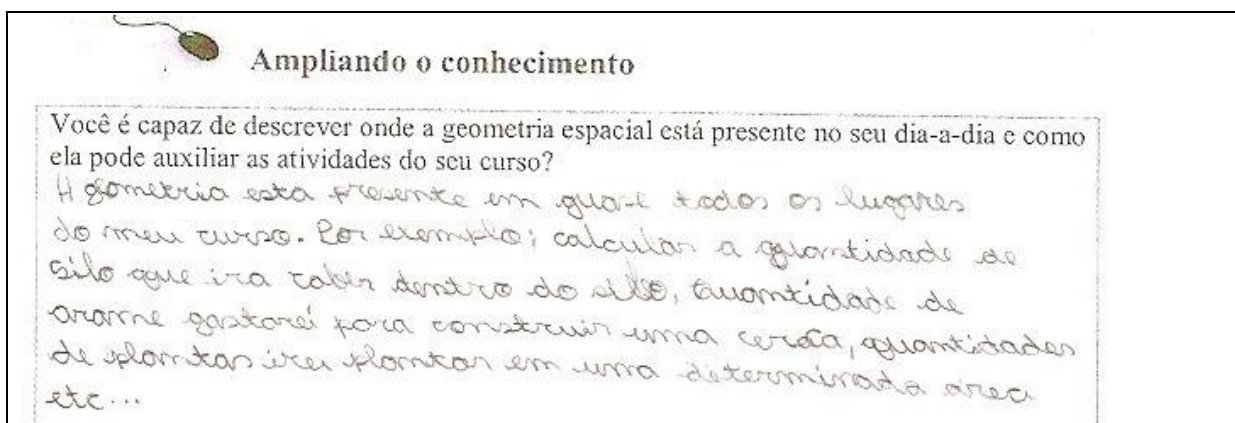 Ampliando o conhecimento
Você é capaz de descrever onde a geometria espacial está presente no seu dia-a-dia e como
ela pode auxiliar as atividades do seu curso?
A geometria esta presente em quase todos os lugares
do meu curso. Por exemplo; calcular a quantidade de
silo que ira caber dentro do silo, quantidade de
arame gastarei para construir uma cerca, quantidades
de plantas irei plantar em uma determinada area
etc...